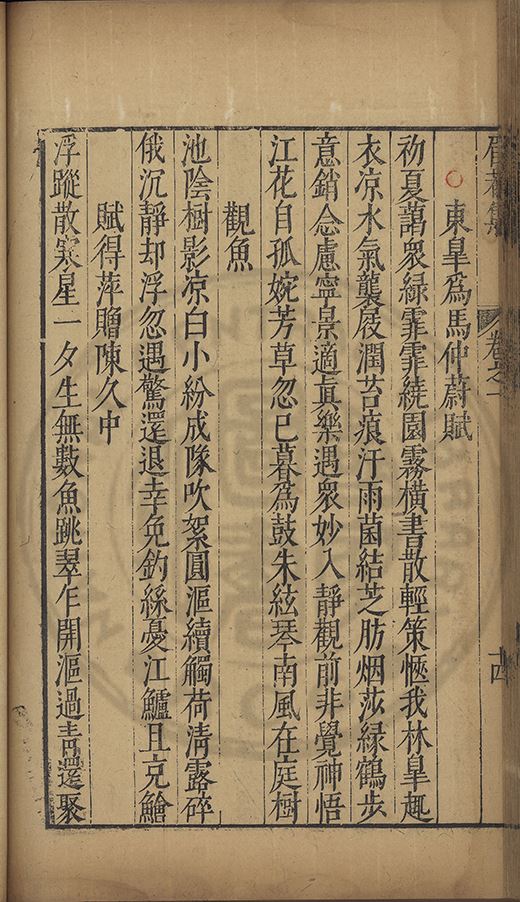 卷之一
十四
東皐爲馬仲蔚賦
初夏藹衆緑霏霏繞園霧橫書散輕策愜我林皐趣
衣凉水氣襲屐潤苔痕汙雨菌結芝肪烟莎緑鶴步
意銷念慮寧景適眞樂遇衆妙入靜觀前非覺神悟
江花自孤婉芳草忽已暮爲鼓朱絃琴南風在庭樹
觀魚
池陰樹影凉白小紛成隊吹絮圓漚續觸荷清露碎
俄沉靜却浮忽遇驚還退幸免釣綵憂江鱸且克鱠
賦得萍贈陳久中
浮蹤散寒星一夕生無數魚跳翠乍開漚過青還聚